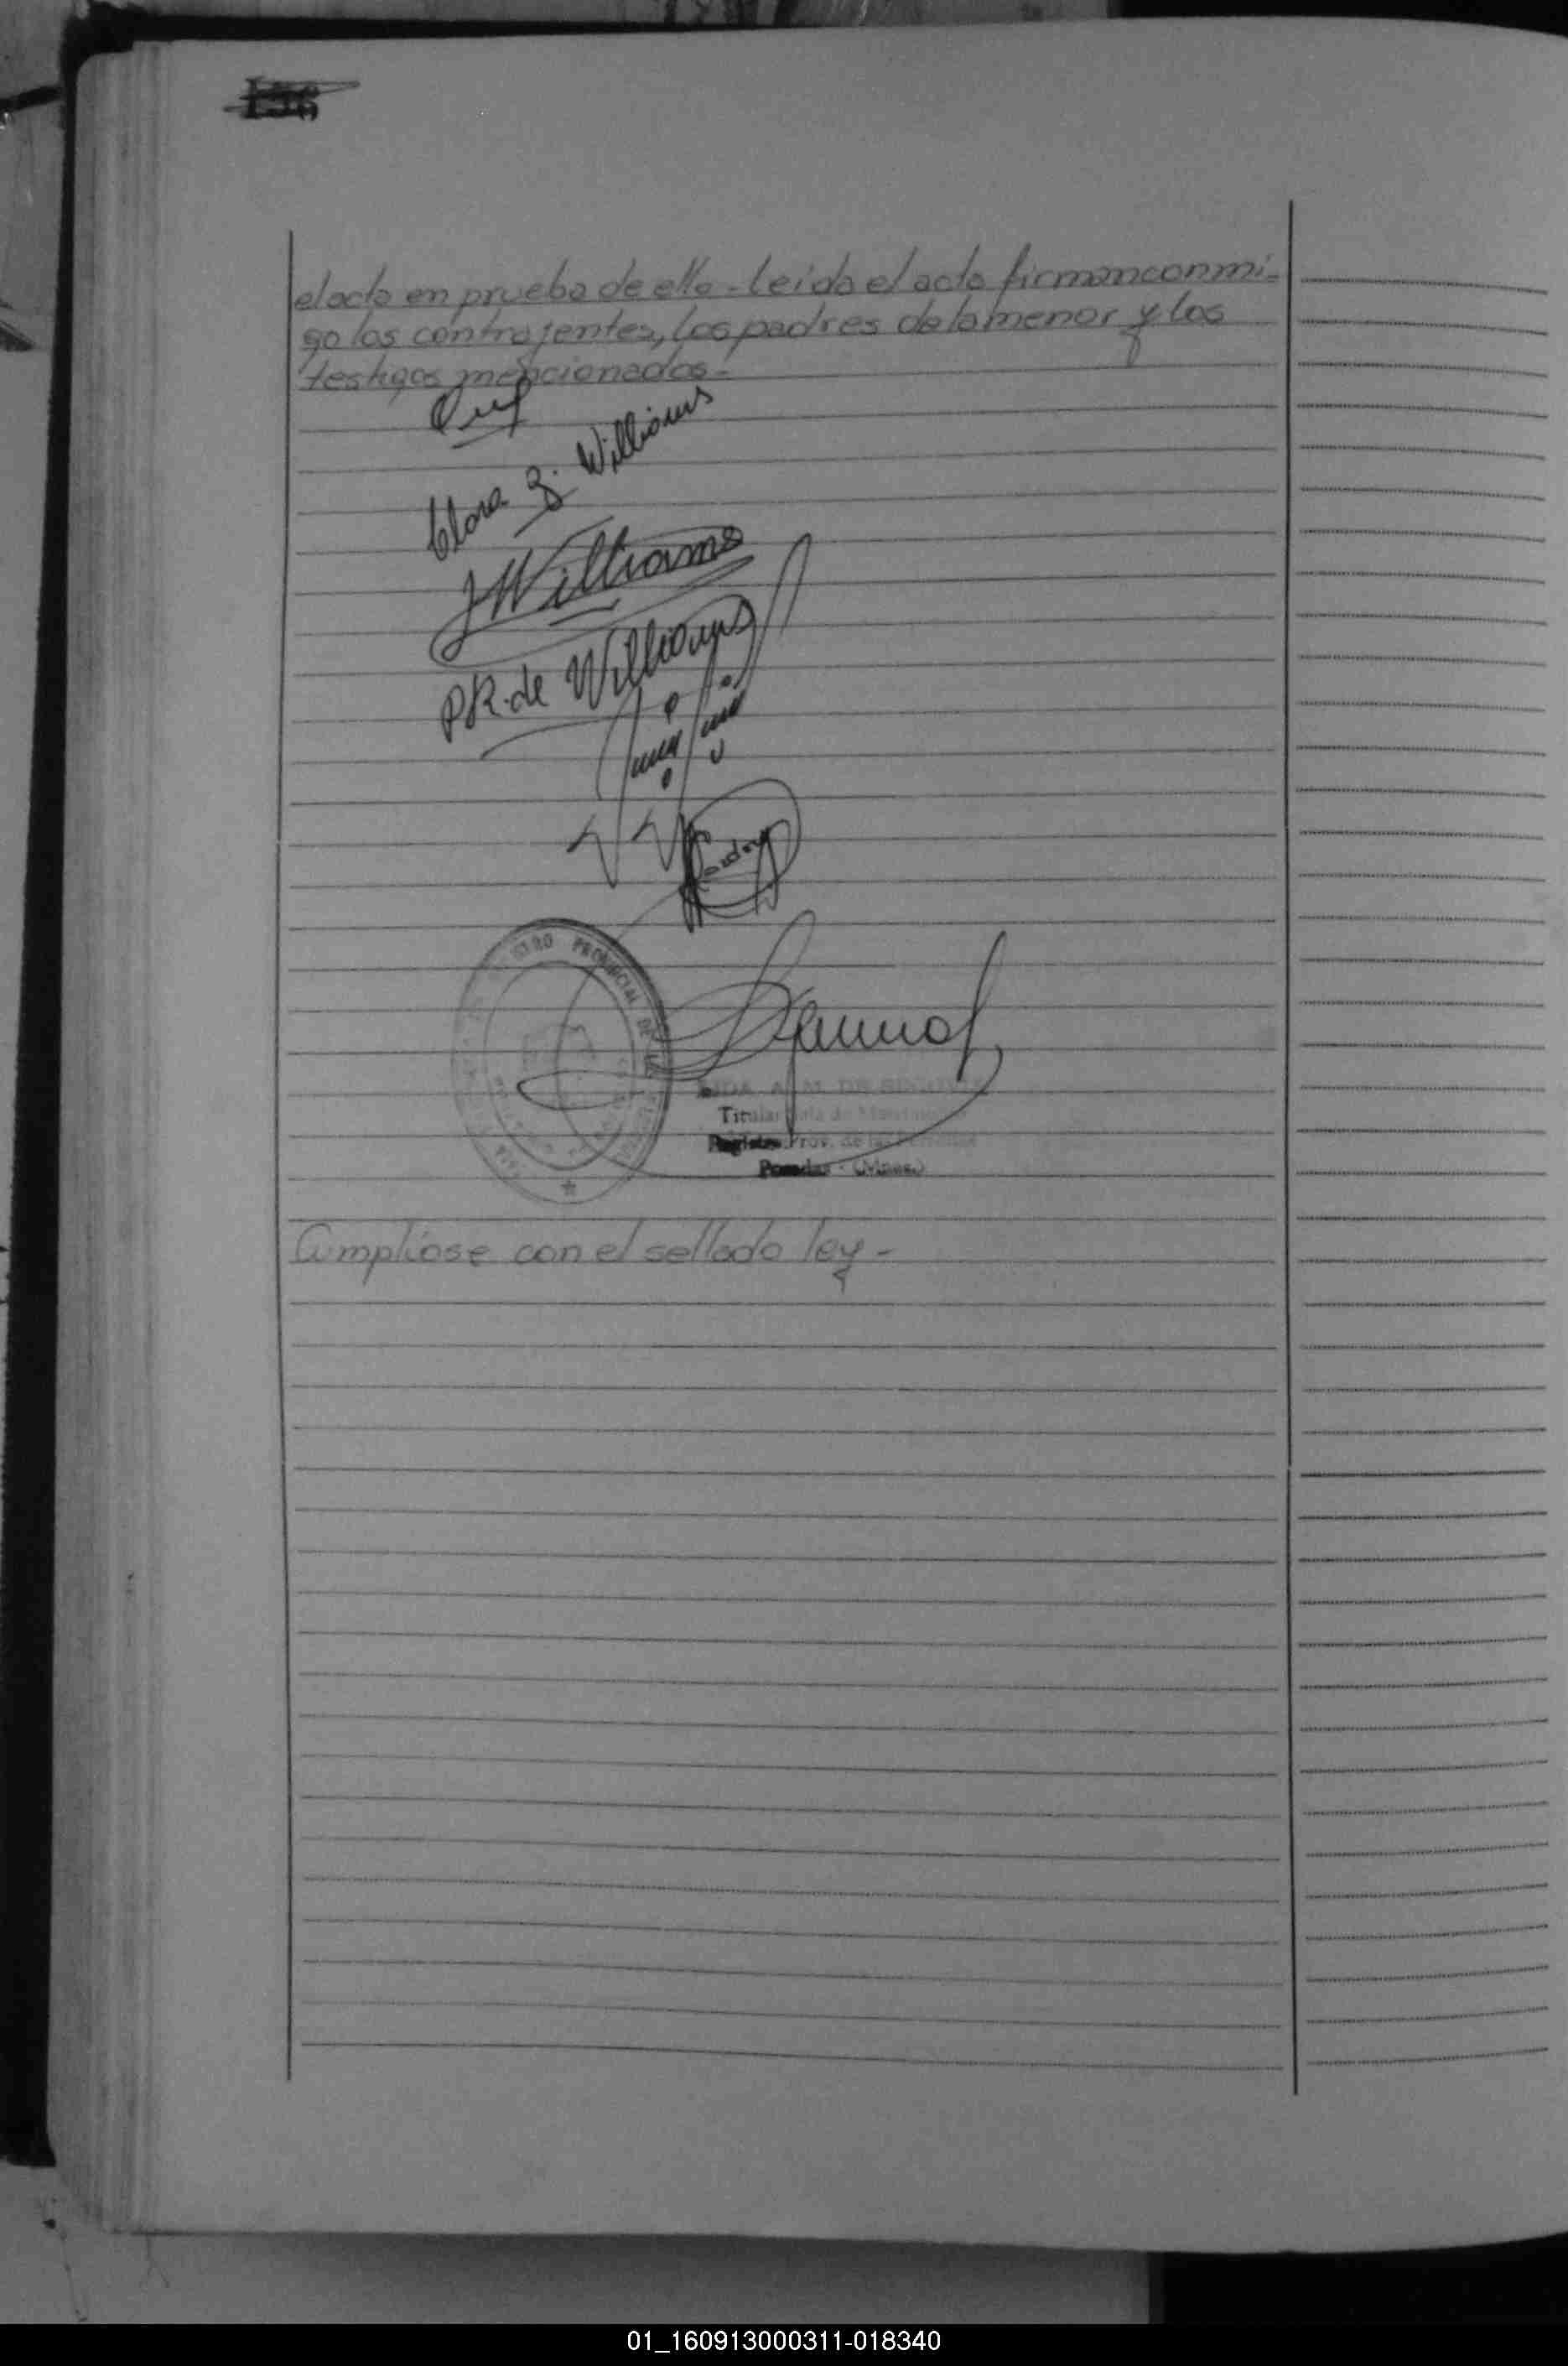 136
el acta en prueba de ello - leida el acta firman conmi-
go los contrajentes, los padres de la menor y los
testigos mencionados.-
Clara B. Williams
J Williams
P R. de Williams
PROVINCIAL DE LAS
A. M. DE
Titular Sala de
Registro Prov. de las Personas
Posadas - (Mnes.)
Cumpliose con el sellado ley -
01_160913000311-018340